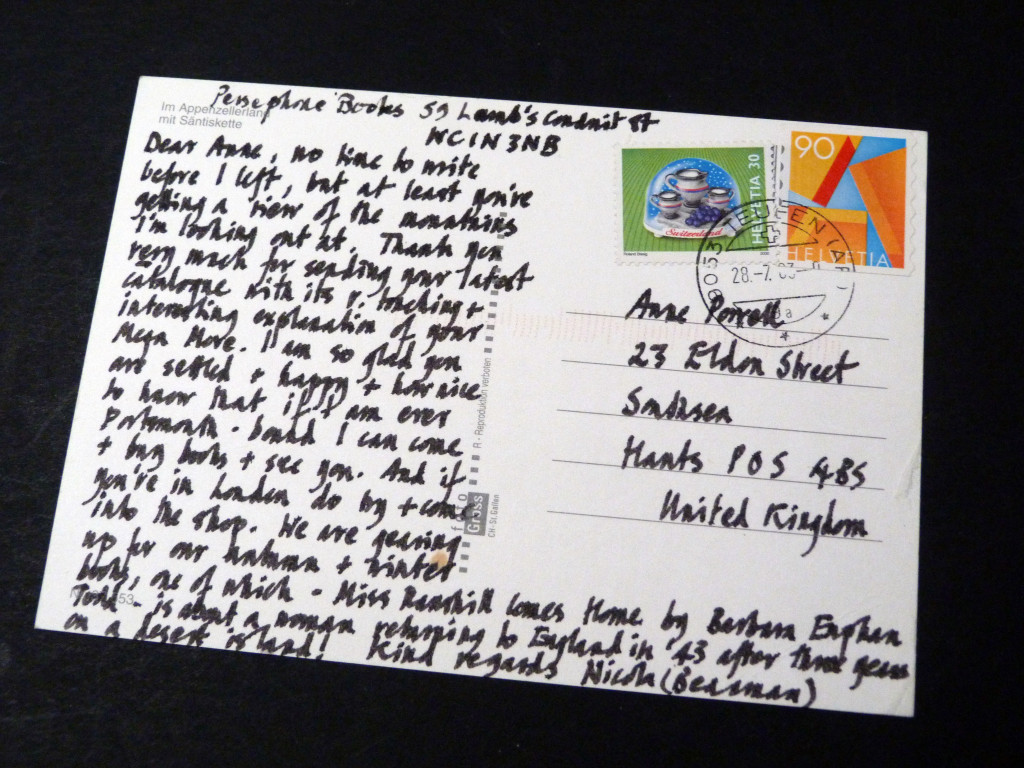 Persephone Books 59 Lamb's Conduit St
WC1N 3NB
Im Appenzellerland
mit Säntiskette
Dear Anne, no time to write
before I left, but at least you're
getting a view of the mountains
I'm looking out at. Thank you
very much for sending your latest
catalogue with its v. touching +
interesting explanation of your
Mega Move. I am so glad you
are settled + happy + how nice
to know that if I am ever
Portsmouth-bound I can come
+ buy books + see you. And if
you're in London do try + come
into the shop. We are gearing
up for our autumn + winter
books, one of which - Miss Ranskill Comes Home by Barbara Euphan
Todd - is about a woman returning to England in '43 after three years
on a desert island! Kind regards Nicola (Beauman)
Switzerland
HELVETIA 30
90
HELVETIA
9053 TEUFEN (AR)
28.-7. 03
Anne Powell
23 Eldon Street
Southsea
Hants PO5 4BS
United Kingdom
R - Reproduktion verboten
foto
Gross
CH-St.Gallen
53